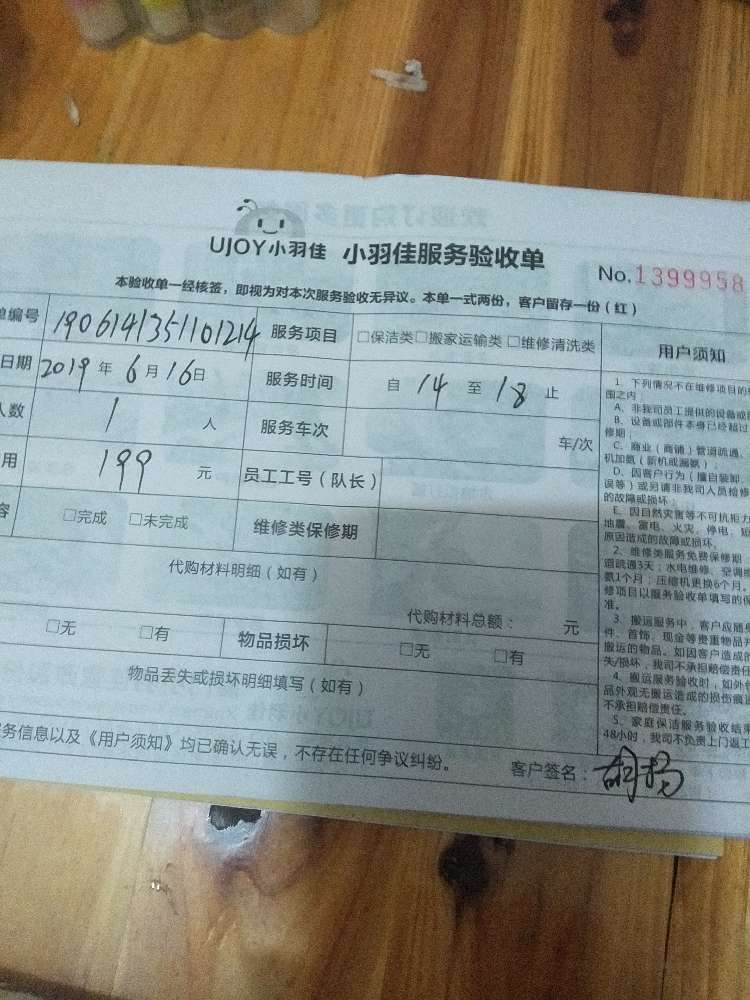 UJOY小羽佳 小羽佳服务验收单
No.1399958
本验收单一经核签，即视为对本次服务验收无异议。本单一式两份，客户留存一份（红）
单编号 1906141351101214 服务项目 □保洁类□搬家运输类 □维修清洗类 用户须知
日期 2019 年 6 月 16日 服务时间 自 14 至 18 止
人数 1 人 服务车次 车/次
用 199 元 员工工号（队长）
容 □完成 □未完成 维修类保修期
代购材料明细（如有）
代购材料总额： 元
□无 □有 物品损坏 □无 □有
物品丢失或损坏明细填写（如有）
务信息以及《用户须知》均已确认无误，不存在任何争议纠纷。
客户签名：胡杨
1、下列情况不在维修项目的
围之内：
A、非我司员工提供的设备或
B、设备或部件本身已经超过
修期；
C、商业（商铺）管道疏通、
机加氨（新机或漏氨）；
D、因客户行为（擅自装卸、
误等）或另请非我司人员检修
的故障或损坏；
E、因自然灾害等不可抗拒力
地震、雷电、火灾、停电、短
原因造成的故障或损坏。
2、维修类服务免费保修期
道疏通3天；水电维修、空调
氨1个月；压缩机更换6个月。
修项目以服务验收单填写的保
准。
3、搬运服务中，客户应随身
件、首饰、现金等贵重物品并
搬运的物品。如因客户造成的
失/损坏，我司不承担赔偿责任
4、搬运服务验收时，如外包
品外观无搬运造成的损伤痕
不承担赔偿责任。
5、家庭保洁服务验收结束
48小时，我司不负责上门返工